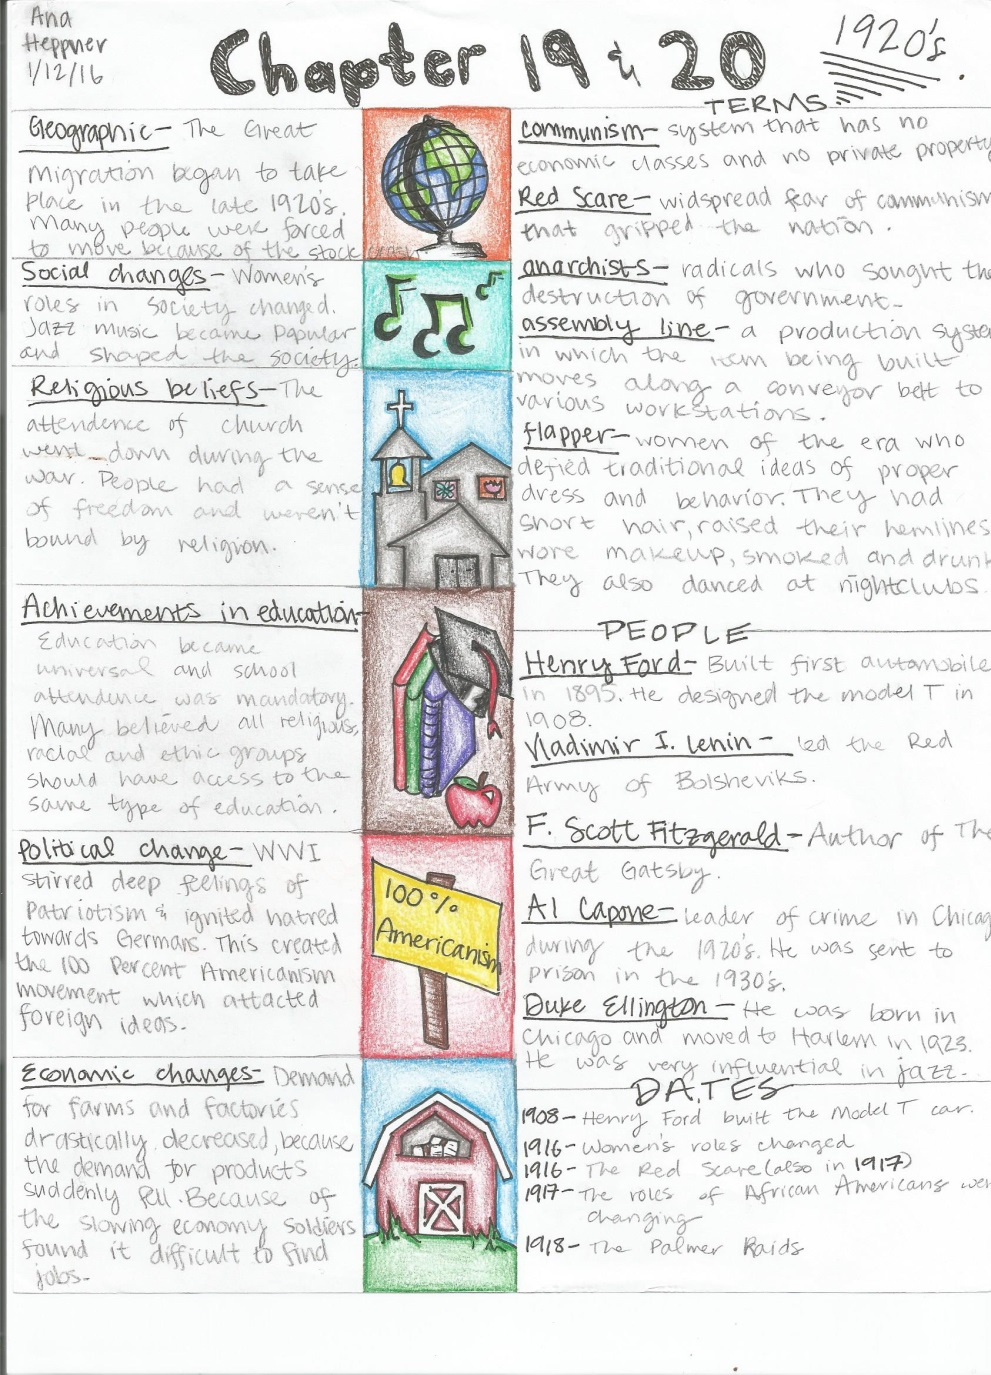 Ana
Heppner
1/12/16
Chapter 19 & 20
1920's.
Geographic- The Great
migration began to take
place in the late 1920's.
Many people were forced
to move because of the stock crash
Social changes- Women's
roles in society changed.
Jazz music became popular
and shaped the society.
Religious beliefs- The
attendence of church
went down during the
war. People had a sense
of freedom and weren't
bound by religion.
Achievements in education-
Education became
universal and school
attendence was mandatory.
Many believed all religious,
racial and ethic groups
should have access to the
same type of education.
Political change- WWI
stirred deep feelings of
Patriotism & ignited hatred
towards Germans. This created
the 100 Percent Americanism
movement which attacted
foreign ideas.
Economic changes- Demand
for farms and factories
drastically decreased, because
the demand for products
suddenly fell. Because of
the slowing economy soldiers
found it difficult to find
jobs.
100%
Americanism
TERMS
communism- system that has no
economic classes and no private property
Red Scare- widspread fear of communism
that gripped the nation.
anarchists- radicals who sought the
destruction of government.
assembly line- a production syste
in which the item being built
moves along a conveyor belt to
various workstations.
flapper- women of the era who
defied traditional ideas of proper
dress and behavior. They had
short hair, raised their hemlines
wore makeup, smoked and drunk
They also danced at nightclubs.
PEOPLE
Henry Ford- Built first automobile
in 1895. He designed the model T in
1908.
Vladimir I. Lenin- led the Red
Army of Bolsheviks.
F. Scott Fitzgerald- Author of The
Great Gatsby.
Al Capone- leader of crime in Chicag
during the 1920's. He was sent to
prison in the 1930's.
Duke Ellington- He was born in
Chicago and moved to Harlem in 1923.
He was very influential in jazz.
DATES
1908- Henry Ford built the Model T car.
1916- Women's roles changed
1916- The Red Scare (also in 1917)
1917- The roles of African Americans wer
changing
1918- The Palmer Raids